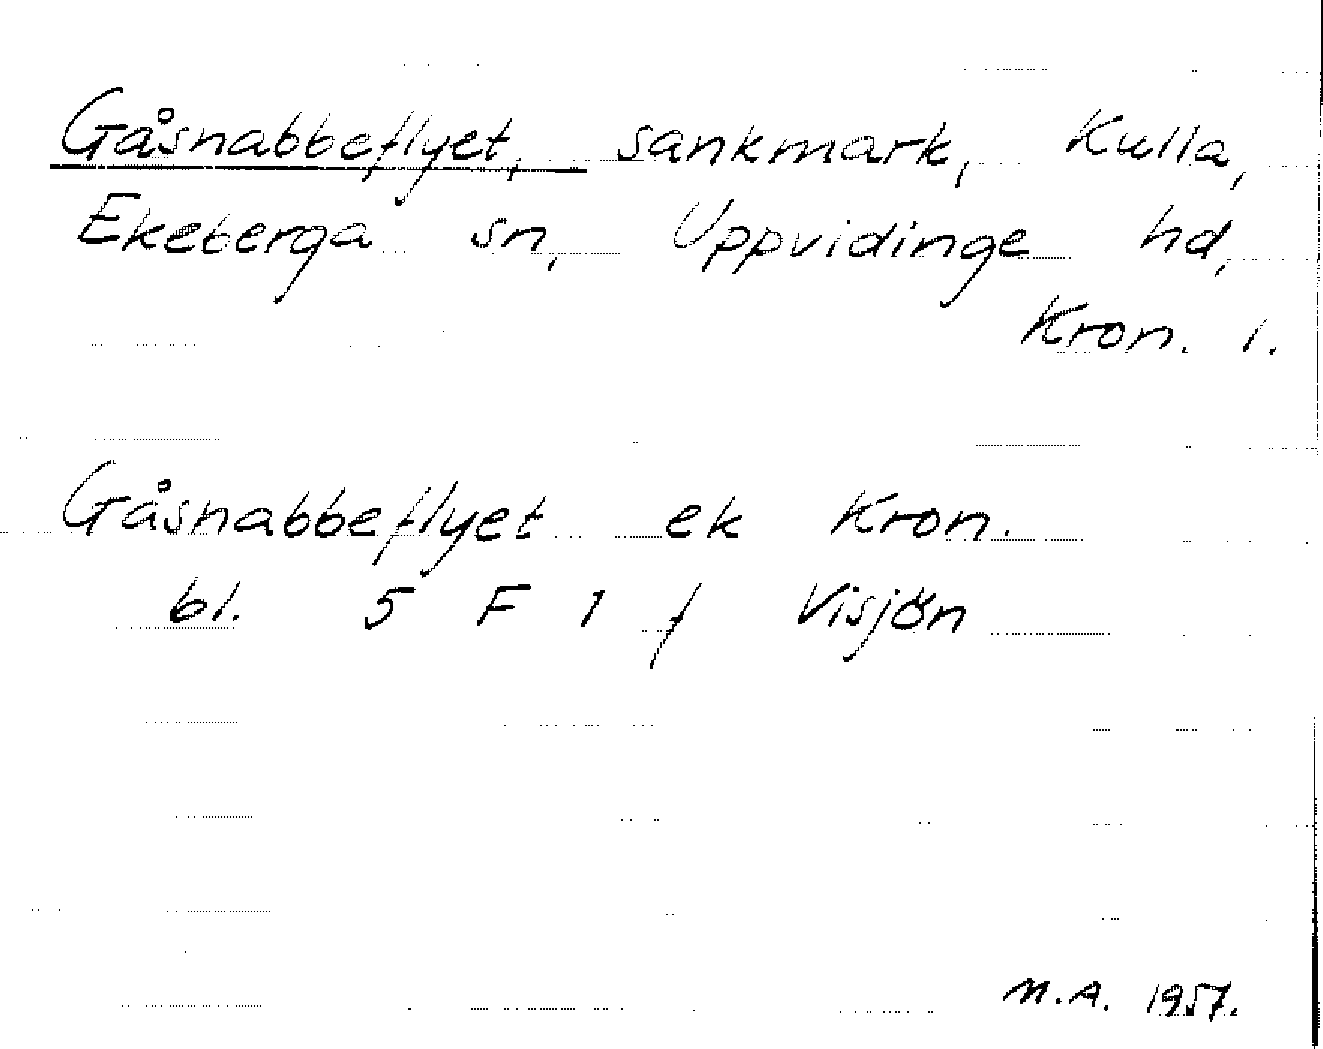 Gåsnabbeflyet, sankmark, Kulla,
Ekeberga sn, Uppvidinge hd,
Kron. l.
Gåsnabbeflyet ek Kron.
bl. 5 F 1 f Visjön
M.A. 1957.